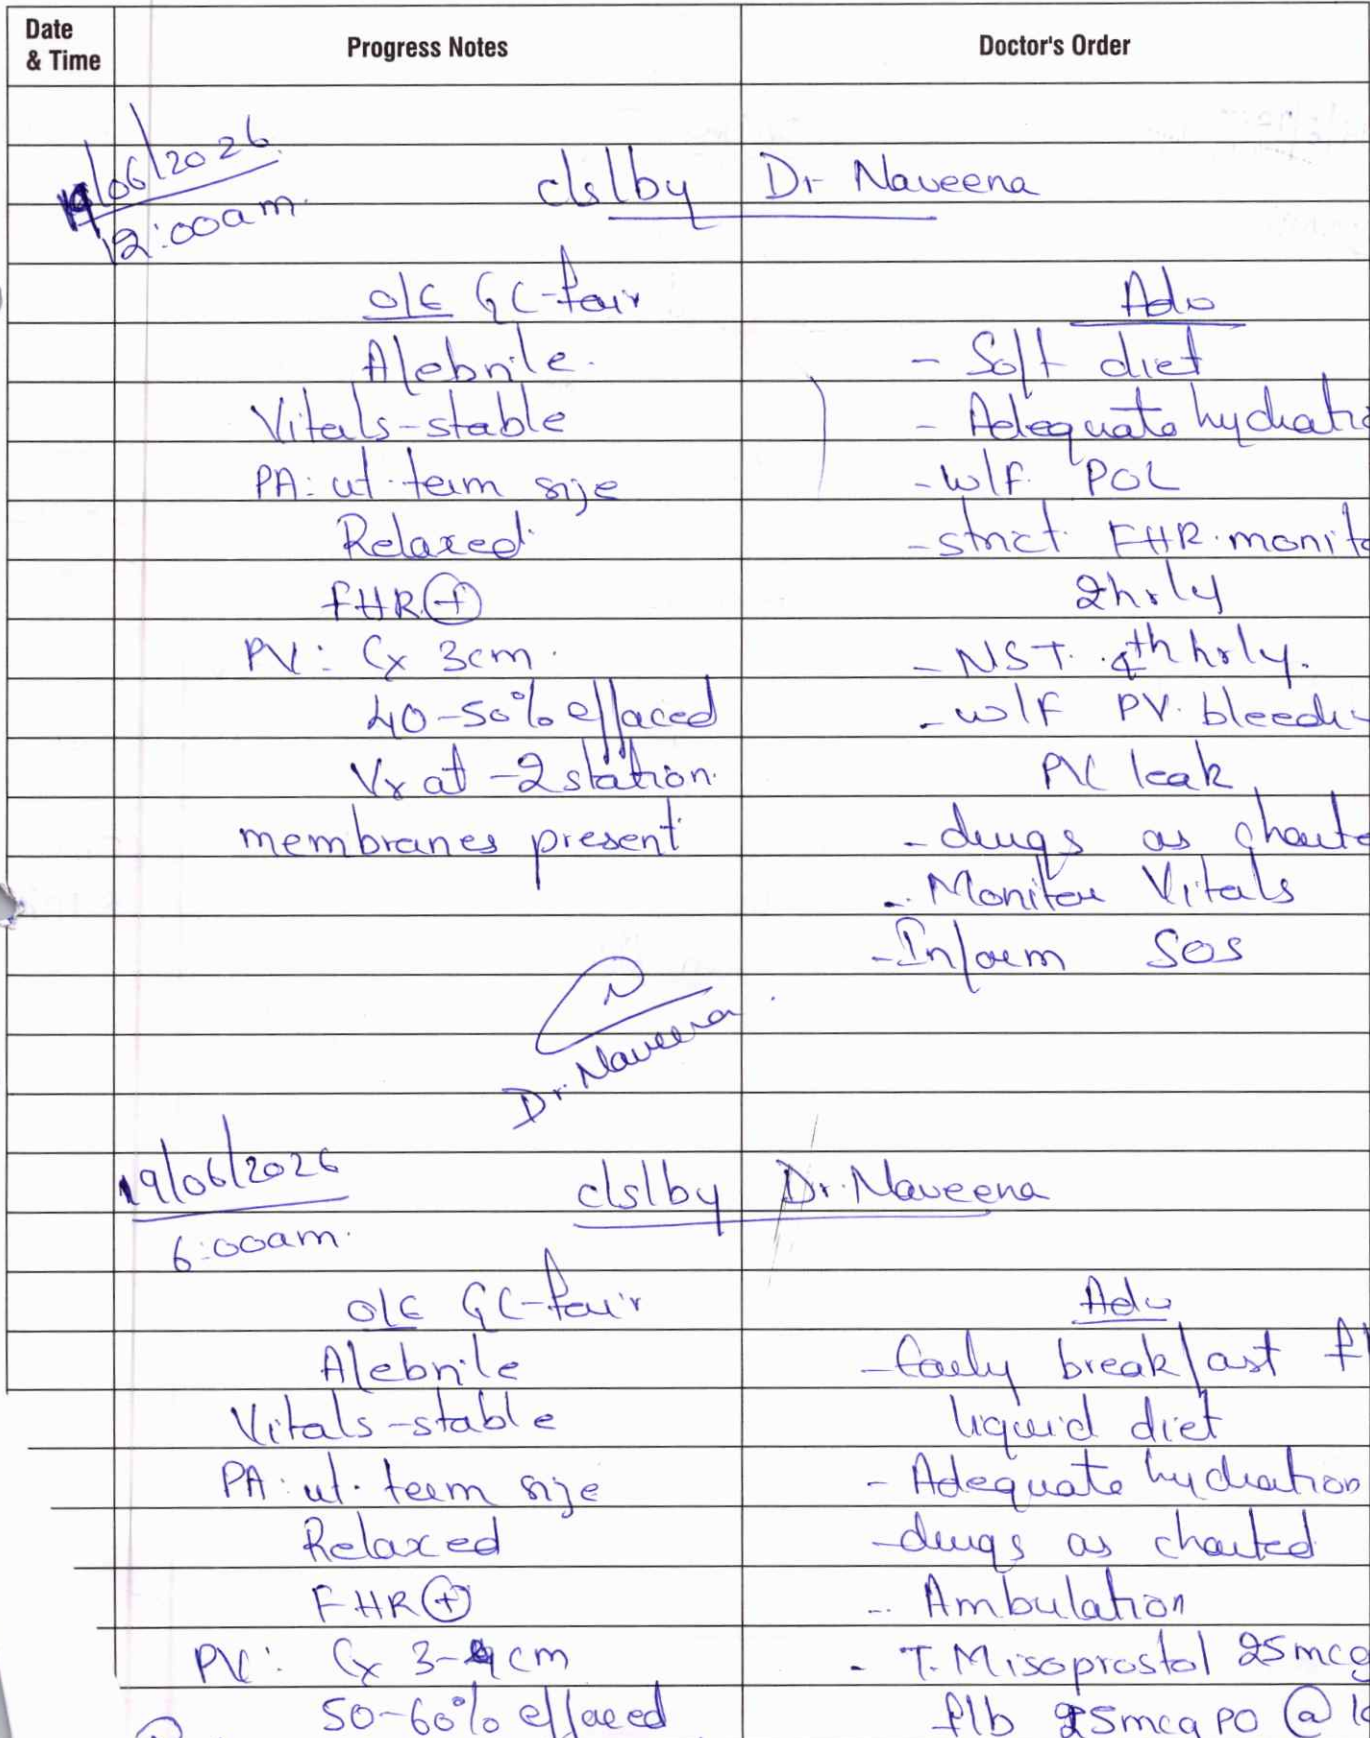 Date & Time
Progress Notes
Doctor's Order
19/06/2026
12:00am.
c/s/by Dr Naveena
O/E GC-fair
Adv
Afebrile.
- Soft diet
Vitals-stable
- Adequate hydratio
PA: ut. term size
- w/f. POL
Relaxed
- strict. FHR. monito
FHR (+)
2hrly
PV: Cx 3cm.
- NST. 4th hrly.
40-50% effaced
- w/F PV. bleedi
Vx at -2 station.
PV leak
membranes present
- drugs as charte
- Monitor Vitals
- Inform SOS
Dr. Naveena
19/06/2026
c/s/by Dr. Naveena
6:00am.
O/E GC-fair
Adv
Afebrile
- Early breakfast f
Vitals-stable
liquid diet
PA: ut. term size
- Adequate hydration
Relaxed
- drugs as charted
FHR (+)
- Ambulation
PV: Cx 3-4cm
- T. Misoprostol 25mcg
50-60% effaced
f/b 25mcg PO @